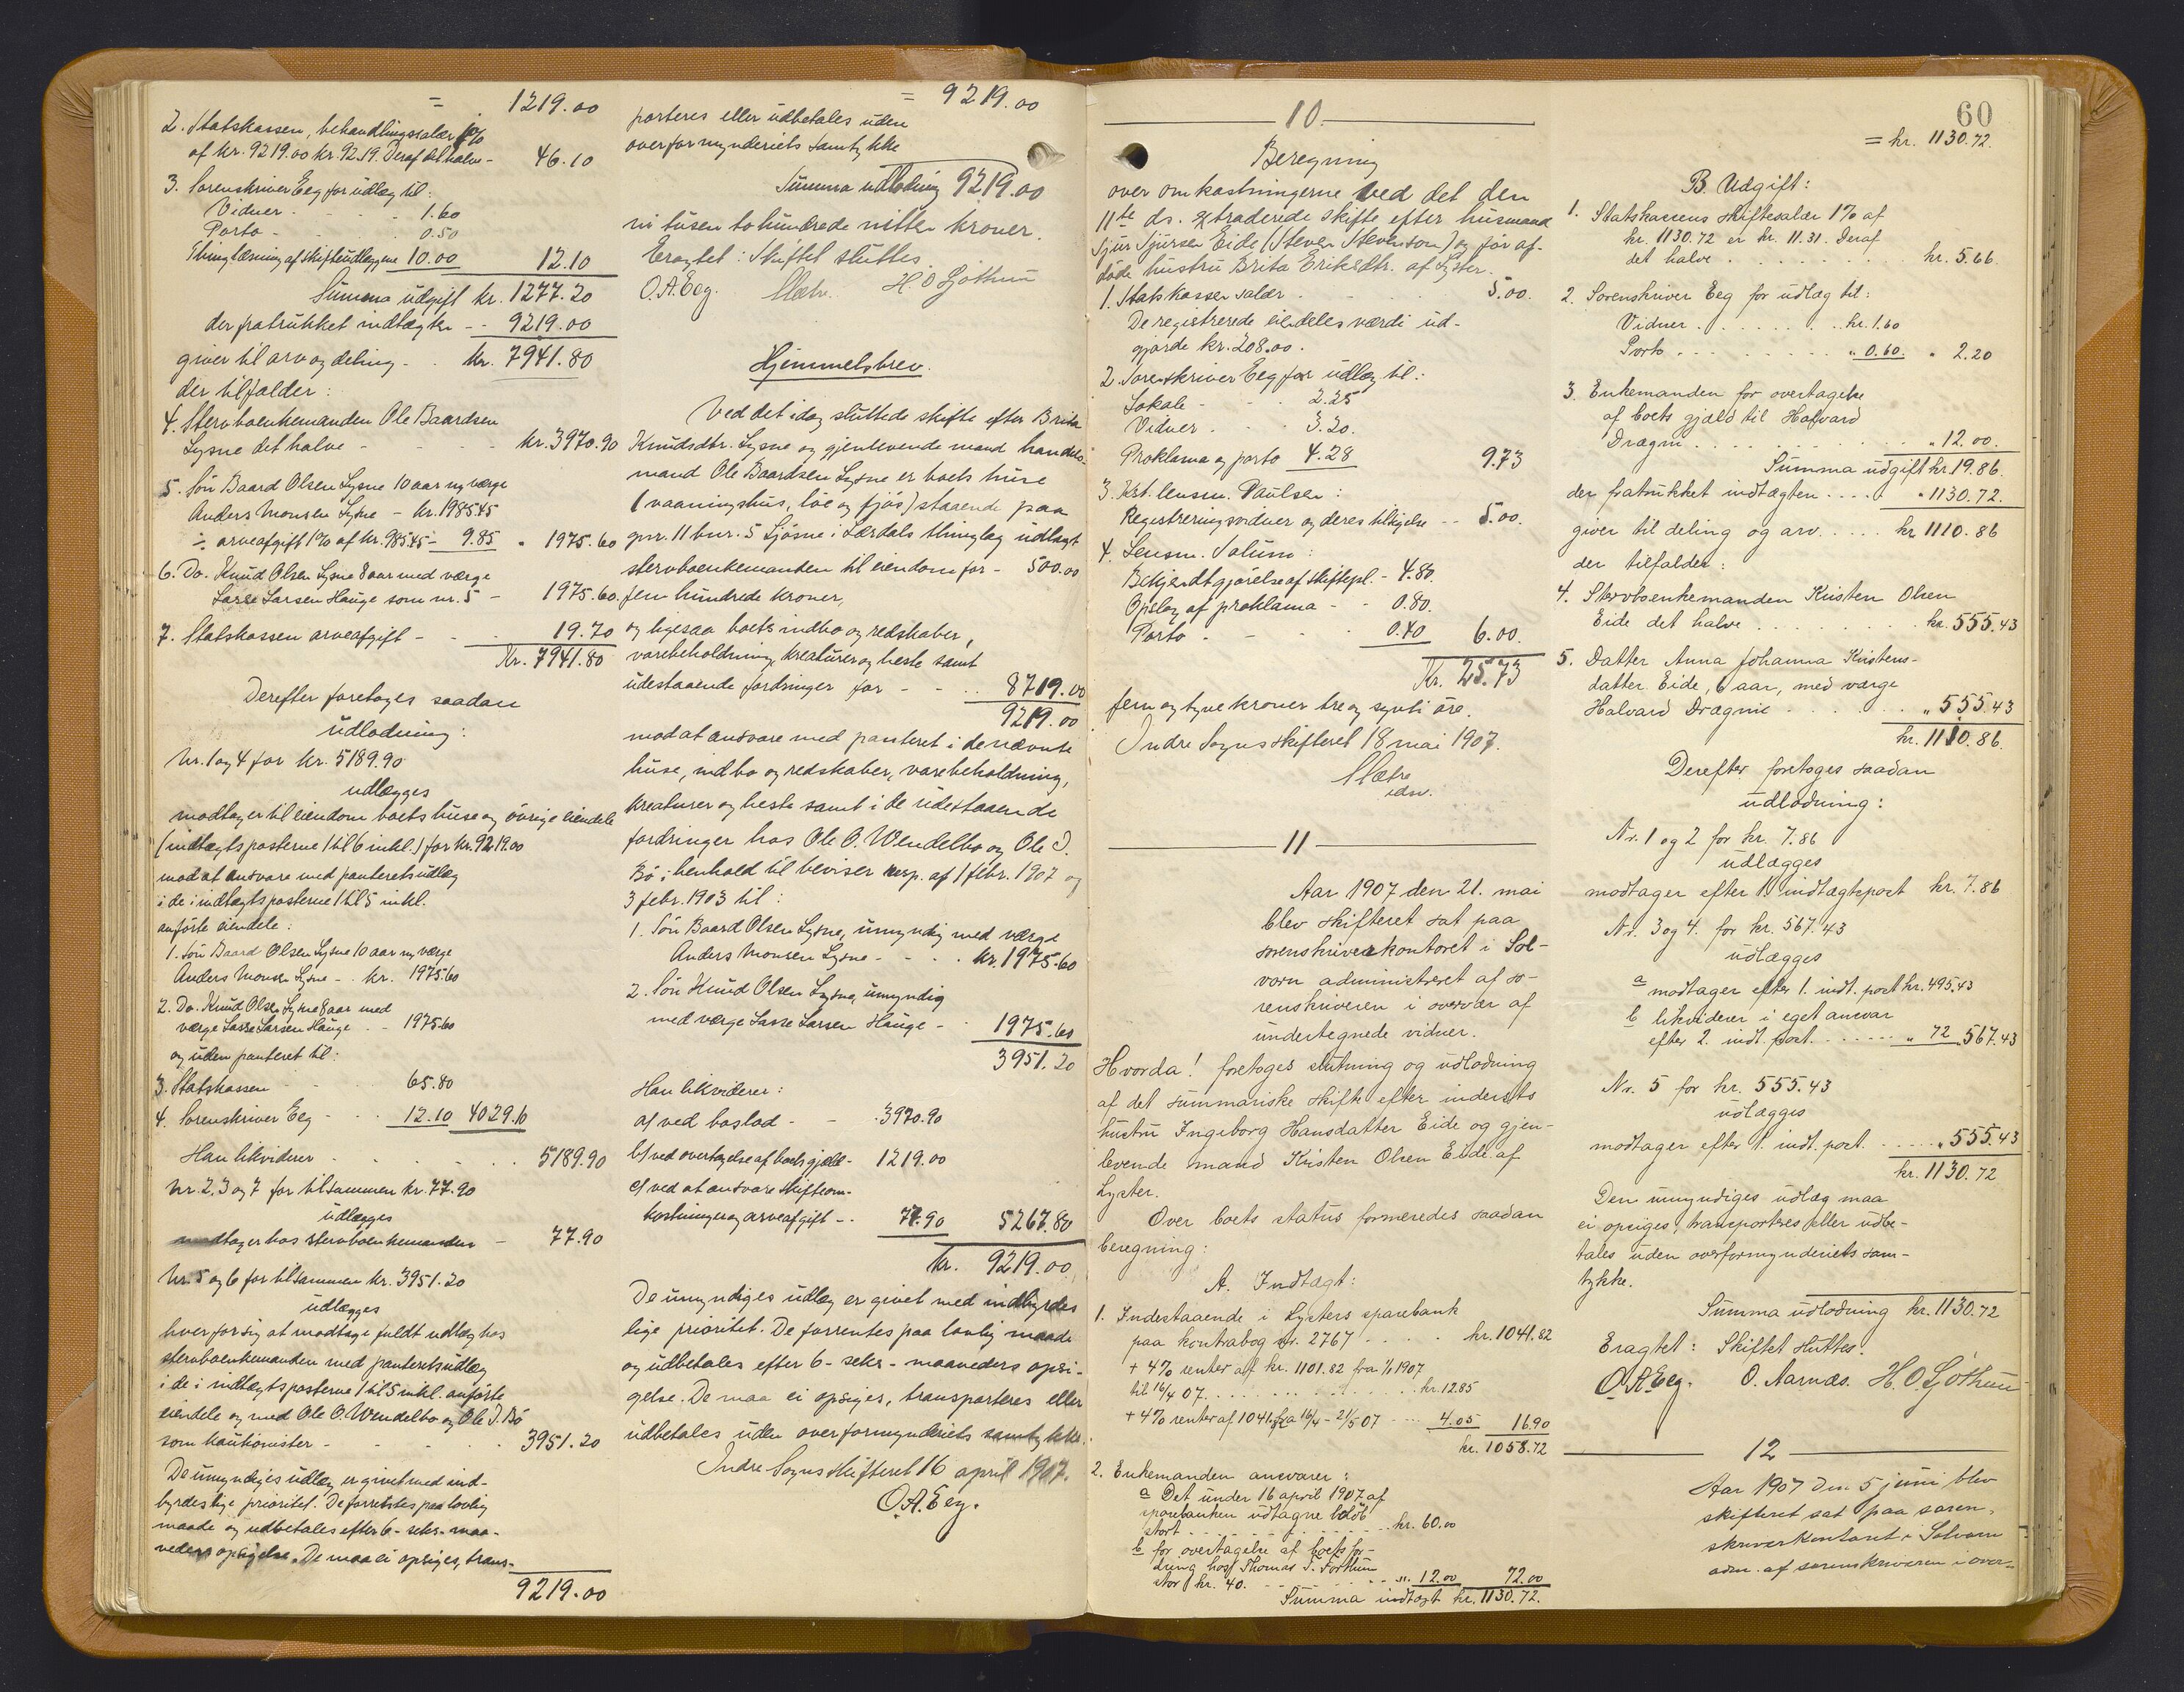 = 1219.00
2. Statskassen, behandlingssalær 1%
af kr. 9219.00 kr. 92.19. Deraf det halve - 46.10
3. Sorenskriver Eeg for udlæg til:
Vidner - - - 1.60
Porto - - - 0.50
Thinglæsning af skifteudlæggene 10.00 12.10
Summa udgift kr. 1277.20
der fratrukket indtægten - - 9219.00
giver til arv og deling - - kr. 7941.80
der tilfalder:
4. Stervboenkemanden Ole Baardsen
Lysne det halve - - - kr. 3970.90
5. Søn Baard Olsen Lysne 10 aar m værge
Anders Monsen Lysne - kr. 1985.45
÷ arveafgift 1% af kr. 985.45 - 9.85 " 1975.60
6. Do. Knud Olsen Lysne 8 aar med værge
Lasse Larsen Hauge som nr. 5 - 1975.60
7. Statskassen arveafgift - - - 19.70
Kr. 7941.80
Derefter foretoges saadan
udlodning:
Nr. 1 og 4 for kr. 5189.90
udlægges
modtager til eiendom boets huse og øvrige eiendele
(indtægtsposterne 1 til 6 inkl.) for kr. 9219.00
mod at ansvare med panteretsudlæg
i de i indtægtsposterne 1 til 5 inkl.
anførte eiendele:
1. Søn Baard Olsen Lysne 10 aar m værge
Anders Monsen Lysne - - kr. 1975.60
2. Do. Knud Olsen Lysne 8 aar med
værge Lasse Larsen Hauge - - 1975.60
og uden panteret til:
3. Statskassen - - 65.80
4. Sorenskriver Eeg - - - 12.10 4029.10
Han likviderer - - - - 5189.90
Nr. 2, 3 og 7 for tilsammen kr. 77.90
udlægges
modtager hos stervboenkemanden - 77.90
Nr. 5 og 6 for tilsammen kr. 3951.20
udlægges
hver for sig at modtage fuldt udlæg hos
stervboenkemanden med panteretsudlæg
i de i indtægtsposterne 1 til 5 inkl. anførte
eiendele og med Ole O. Wendelbo og Ole I. Bø
som kautionister - - - - 3951.20
De umyndiges udlæg er givet med ind-
byrdes lige prioritet. De forrentes paa lovlig
maade og udbetales efter 6 - seks - maa-
neders opsigelse. De maa ei opsiges, trans-
9219.00
= 9219.00
porteres eller udbetales uden
overformynderiets samtykke
Summa udlodning 9219.00
ni tusen tohundrede nitten kroner.
Eragtet: Skiftet sluttes.
O.A. Eeg. Sætre. H O Sjøthun
Hjemmelsbrev.
Ved det idag sluttede skifte efter Brita
Knudsdtr. Lysne og gjenlevende mand handels-
mand Ole Baardsen Lysne er boets huse
(vaaningshus, løe og fjøs) staaende paa
gnr. 11 bnr. 5 Ljøsne i Lærdals thinglag udlagt
stervboenkemanden til eiendom for - 500.00
fem hundrede kroner,
og ligesaa boets indbo og redskaber,
varebeholdning, kreaturer og heste samt
udestaaende fordringer for - - .. 8719.00
9219.00
mod at ansvare med panteret i de nævnte
huse, indbo og redskaber, varebeholdning,
kreaturer og heste samt i de udestaaende
fordringer hos Ole O. Wendelbo og Ole I.
Bø i henhold til beviser resp. af 1 febr. 1907 og
3 febr. 1903 til:
1. Søn Baard Olsen Lysne, umyndig med værge
Anders Monsen Lysne - - - - kr. 1975.60
2. Søn Knud Olsen Lysne, umyndig
med værge Lasse Larsen Hauge - - 1975.60
3951.20
Han likviderer:
a) ved boslod - - 3970.90
b) ved overtagelse af boets gjæld - 1219.00
c) ved at ansvare skifteom-
kostninger og arveafgift - - 77.90 5267.80
Kr. 9219.00
De umyndiges udlæg er givet med indbyrdes
lige prioritet. De forrentes paa lovlig maade
og udbetales efter 6 - seks - maaneders opsi-
gelse. De maa ei opsiges, transporteres eller
udbetales uden overformynderiets samtykke.
Indre Sogns skifteret 16 april 1907.
O.A. Eeg.
10
Beregning
over omkostningerne ved det den
11te ds. extraderede skifte efter husmand
Sjur Sjursen Eide (Steven Stevenson) og før af-
døde hustru Brita Eriksdtr. af Lyster.
1. Statskassen salær - - - - 5.00.
De registrerede eiendeles værdi ud-
gjorde kr. 208.00.
2. Sorenskriver Eeg for udlæg til:
Lokale - - - 2.25
Vidner - - - 3.20.
Proklama og porto 4.28 9.73
3. Kst. lensm. Paulsen:
Registreringsvidner og deres tilsigelse - - 5.00.
4. Lensm. Solum:
Bekjendtgjørelse af skiftepl. - 4.80.
Opslag af proklama - - 0.80.
Porto - - - 0.40 6.00.
Kr. 25.73
fem og tyve kroner tre og sytti øre.
Indre Sogns skifteret 18 mai 1907.
Sætre
edsv.
11
Aar 1907 den 21. mai
blev skifteret sat paa
sorenskriverkontoret i Sol-
vorn administreret af so-
renskriveren i overvær af
undertegnede vidner.
Hvorda! foretoges slutning og udlodning
af det summariske skifte efter inderests
hustru Ingeborg Hansdatter Eide og gjen-
levende mand Kristen Olsen Eide af
Lyster.
Over boets status formeredes saadan
beregning:
A. Indtægt:
1. Indestaaende i Lysters sparebank
paa kontrabog nr. 2767 . . . . kr. 1041.82
+ 4% renter af kr. 1101.82 fra 1/1 1907
til 16/4 07. . . . . . . . . kr. 12.85
+ 4% renter af 1041. fra 16/4 - 21/5 07 . . . 4.05 16.90
kr. 1058.72
2. Enkemanden ansvarer:
a Det under 16 april 1907 af
sparebanken udtagne beløb
stort . . . . . . . . . kr. 60.00
b for overtagelse af boets for-
dring hos Thomas T. Forthun
stor kr. 40. - - - - - - " 12.00 72.00
Summa indtægt kr. 1130.72.
60
= kr. 1130.72.
B. Udgift:
1. Statskassens skiftesalær 1% af
kr. 1130.72 er kr. 11.31. Deraf
det halve . . . . . . . . kr. 5.66
2. Sorenskriver Eeg for udlæg til:
Vidner . . . . . . . . kr. 1.60
Porto . . . . . . . . " 0.60. " 2.20
3. Enkemanden for overtagelse
af boets gjæld til Halvard
Drægni . . . . . . . . " 12.00.
Summa udgift kr. 19.86.
der fratrukket indtægten . . . . " 1130.72.
giver til deling og arv . . . . kr 1110.86
der tilfalder:
4. Stervboenkemanden Kristen Olsen
Eide det halve . . . . . . . kr. 555.43
5. Datter Anna Johanna Kristens-
datter Eide, 6 aar, med værge
Halvard Drægni . . . . . . " 555.43
kr. 1110.86.
Derefter foretoges saadan
udlodning:
Nr. 1 og 2 for kr. 7.86
udlægges
modtager efter 1. indtægtspost kr. 7.86
Nr. 3 og 4. for kr. 567.43
udlægges
a modtager efter 1. indt. post kr. 495.43
b likviderer i eget ansvar
efter 2. indt. post . . . . . . " 72 567.43
Nr. 5 for kr. 555.43
udlægges
modtager efter 1. indt. post. . . . . . " 555.43
kr. 1130.72
Den umyndiges udlæg maa
ei opsiges, transporteres eller udbe-
tales uden overformynderiets sam-
tykke.
Summa udlodning kr. 1130.72
Eragtet: Skiftet sluttes.
O.A. Eeg. O. Aarnæs. H.O. Sjøthun
12
Aar 1907 den 5 juni blev
skifteret sat paa soren-
skriverkontoret i Solvorn
adm. af sorenskriveren i over-